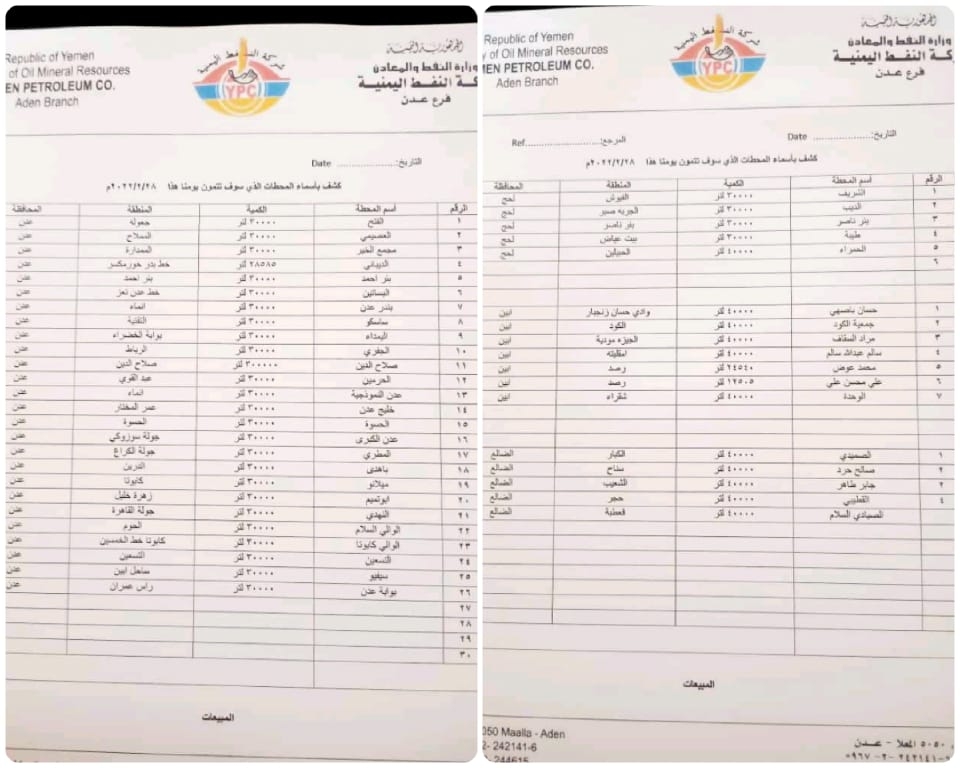 Republic of Yemen
of Oil Mineral Resources
EN PETROLEUM CO.
Aden Branch
شركة النفط اليمنية
YPC
الجمهورية اليمنية
وزارة النفط والمعادن
كة النفط اليمنية
فرع عدن
التاريخ: Date ....................
كشف بأسماء المحطات الذي سوف تتمون يومنا هذا ٢٠٢٢/٢/٢٨م
الرقم أسم المحطة الكمية المنطقة المحافظة
١ الفتح ٣٠٠٠٠ لتر جعولة عدن
٢ العصيمي ٣٠٠٠٠ لتر المملاح عدن
٣ مجمع الخير ٣٠٠٠٠ لتر الممدارة عدن
٤ الديباني ٢٨٥٨٥ لتر خط بدر خورمكسر عدن
٥ بئر احمد ٣٠٠٠٠ لتر بئر احمد عدن
٦ البساتين ٣٠٠٠٠ لتر خط عدن تعز عدن
٧ بندر عدن ٣٠٠٠٠ لتر انماء عدن
٨ ساسكو ٣٠٠٠٠ لتر التقنية عدن
٩ اليمداء ٣٠٠٠٠ لتر بوابة الخضراء عدن
١٠ الجفري ٣٠٠٠٠ لتر الرباط عدن
١١ صلاح الدين ٣٠٠٠٠٠ لتر صلاح الدين عدن
١٢ الحرمين ٣٠٠٠٠ لتر عبد القوي عدن
١٣ عدن النموذجية ٣٠٠٠٠ لتر انماء عدن
١٤ خليج عدن ٣٠٠٠٠ لتر عمر المختار عدن
١٥ الحسوة ٣٠٠٠٠ لتر الحسوة عدن
١٦ عدن الكبرى ٣٠٠٠٠ لتر جولة سوزوكي عدن
١٧ المطري ٣٠٠٠٠ لتر جولة الكراع عدن
١٨ باهدى ٣٠٠٠٠ لتر الدرين عدن
١٩ ميلانو ٣٠٠٠٠ لتر كابوتا عدن
٢٠ ابوتميم ٣٠٠٠٠ لتر زهرة خليل عدن
٢١ النهدي ٣٠٠٠٠ لتر جولة القاهرة عدن
٢٢ الوالي السلام ٣٠٠٠٠ لتر الحوم عدن
٢٣ الوالي كابوتا ٣٠٠٠٠ لتر كابوتا خط الخمسين عدن
٢٤ التسعين ٣٠٠٠٠ لتر التسعين عدن
٢٥ سيفيو ٣٠٠٠٠ لتر ساحل ابين عدن
٢٦ بوابة عدن ٣٠٠٠٠ لتر راس عمران عدن
٢٧
٢٨
٢٩
٣٠
المبيعات
Republic of Yemen
y of Oil Mineral Resources
MEN PETROLEUM CO.
Aden Branch
شركة النفط اليمنية
YPC
الجمهورية اليمنية
وزارة النفط والمعادن
كة النفط اليمنية
فرع عدن
التاريخ: Date .................... المرجع: Ref.......................
كشف بأسماء المحطات الذي سوف تتمون يومنا هذا ٢٠٢٢/٢/٢٨م
الرقم أسم المحطة الكمية المنطقة المحافظة
١ الشريف ٣٠٠٠٠ لتر الفيوش لحج
٢ الذيب ٣٠٠٠٠ لتر الجربه صبر لحج
٣ بئر ناصر ٣٠٠٠٠ لتر بئر ناصر لحج
٤ طيبة ٣٠٠٠٠ لتر بيت عياض لحج
٥ الحمراء ٣٠٠٠٠ لتر الحبيلين لحج
٦
١ حسان باصهي ٤٠٠٠٠ لتر وادي حسان زنجبار ابين
٢ جمعية الكود ٤٠٠٠٠ لتر الكود ابين
٣ مراد السقاف ٤٠٠٠٠ لتر الجيزه مودية ابين
٤ سالم عبدالله سالم ٤٠٠٠٠ لتر امقليته ابين
٥ محمد عوض ٢٤٥٤٠ لتر رصد ابين
٦ علي محسن علي ١٢٥٠٥ لتر رصد ابين
٧ الوحدة ٤٠٠٠٠ لتر شقراء ابين
١ الصميدي ٤٠٠٠٠ لتر الكبار الضالع
٢ صالح حرد ٤٠٠٠٠ لتر سناح الضالع
٢ جابر طاهر ٤٠٠٠٠ لتر الشعيب الضالع
٤ القطيبي ٤٠٠٠٠ لتر حجر الضالع
الصيادي السلام ٤٠٠٠٠ لتر قعطبة الضالع
المبيعات
050 Maalla - Aden
2- 242141-6
244615
٥٠٥٠ المعلا - عدن
٠٩٦٧ -٢- ٢٤٢١٤١-٦